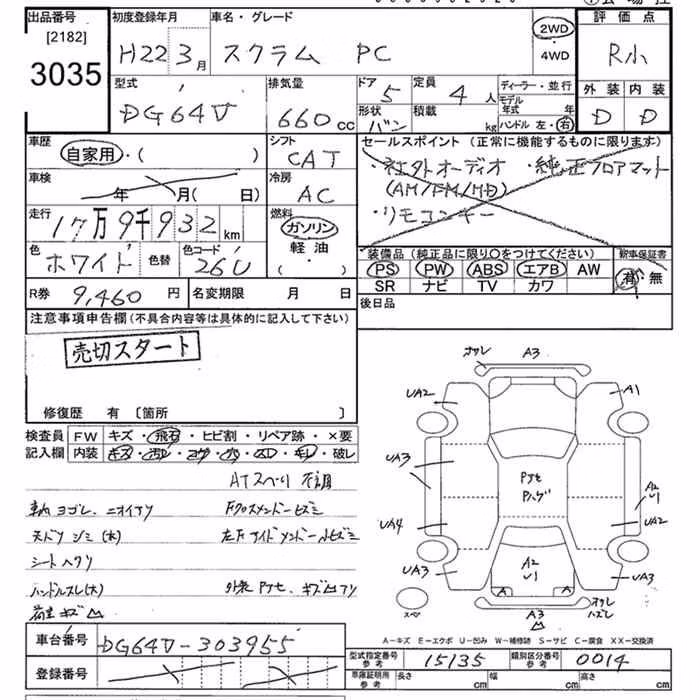 出品番号 初度登録年月 車名・グレード 評価点
[2182]
3035
H22 3月 スクラム PC 2WD・4WD R小
型式 排気量 ドア 定員 ディーラー・並行 外装 内装
DG64V 660cc 5 4人 モデル年式 年 D D
形状 積載 バン kg ハンドル 左・右
車歴 シフト セールスポイント (正常に機能するものに限ります)
自家用・( ) CAT ・社外オーディオ ・純正フロアマット
車検 冷房 (AM/FM/MD)
年 月( 日) AC ・リモコンキー
走行 燃料
17万9千932km ガソリン
色 色替 色コード 軽油
ホワイト 26U (・)
装備品 (純正品に限り〇をつけてください) 新車保証書
PS PW ABS エアB AW 有・無
SR ナビ TV カワ
R券 9,460円 名変期限 月 日 後日品
注意事項申告欄(不具合内容等は具体的に記入して下さい)
売切スタート
修復歴 有 〔箇所 〕
検査員 FW キズ・飛石・ヒビ割・リペア跡・×要
記入欄 内装 キズ・汚レ・コゲ・穴・スレ・キレ・破レ
ATスベリ 不調
車内 ヨゴレ、ニオイアリ
シートヘタリ
ハンドルスレ(大)
車台番号 DG64V-303955
登録番号
オサレ A3
UA2 A1
UA3
A2 U1
UA4 UA2
UA3 A2 U1 UA3
A A
スペア A3
A－キズ E－エクボ U－凹み W－補修跡 S－サビ C－腐食 XX－交換済
型式指定番号 参考 15135 類別区分番号 参考 0014
車庫証明用 参考 長さ cm 幅 cm 高さ cm